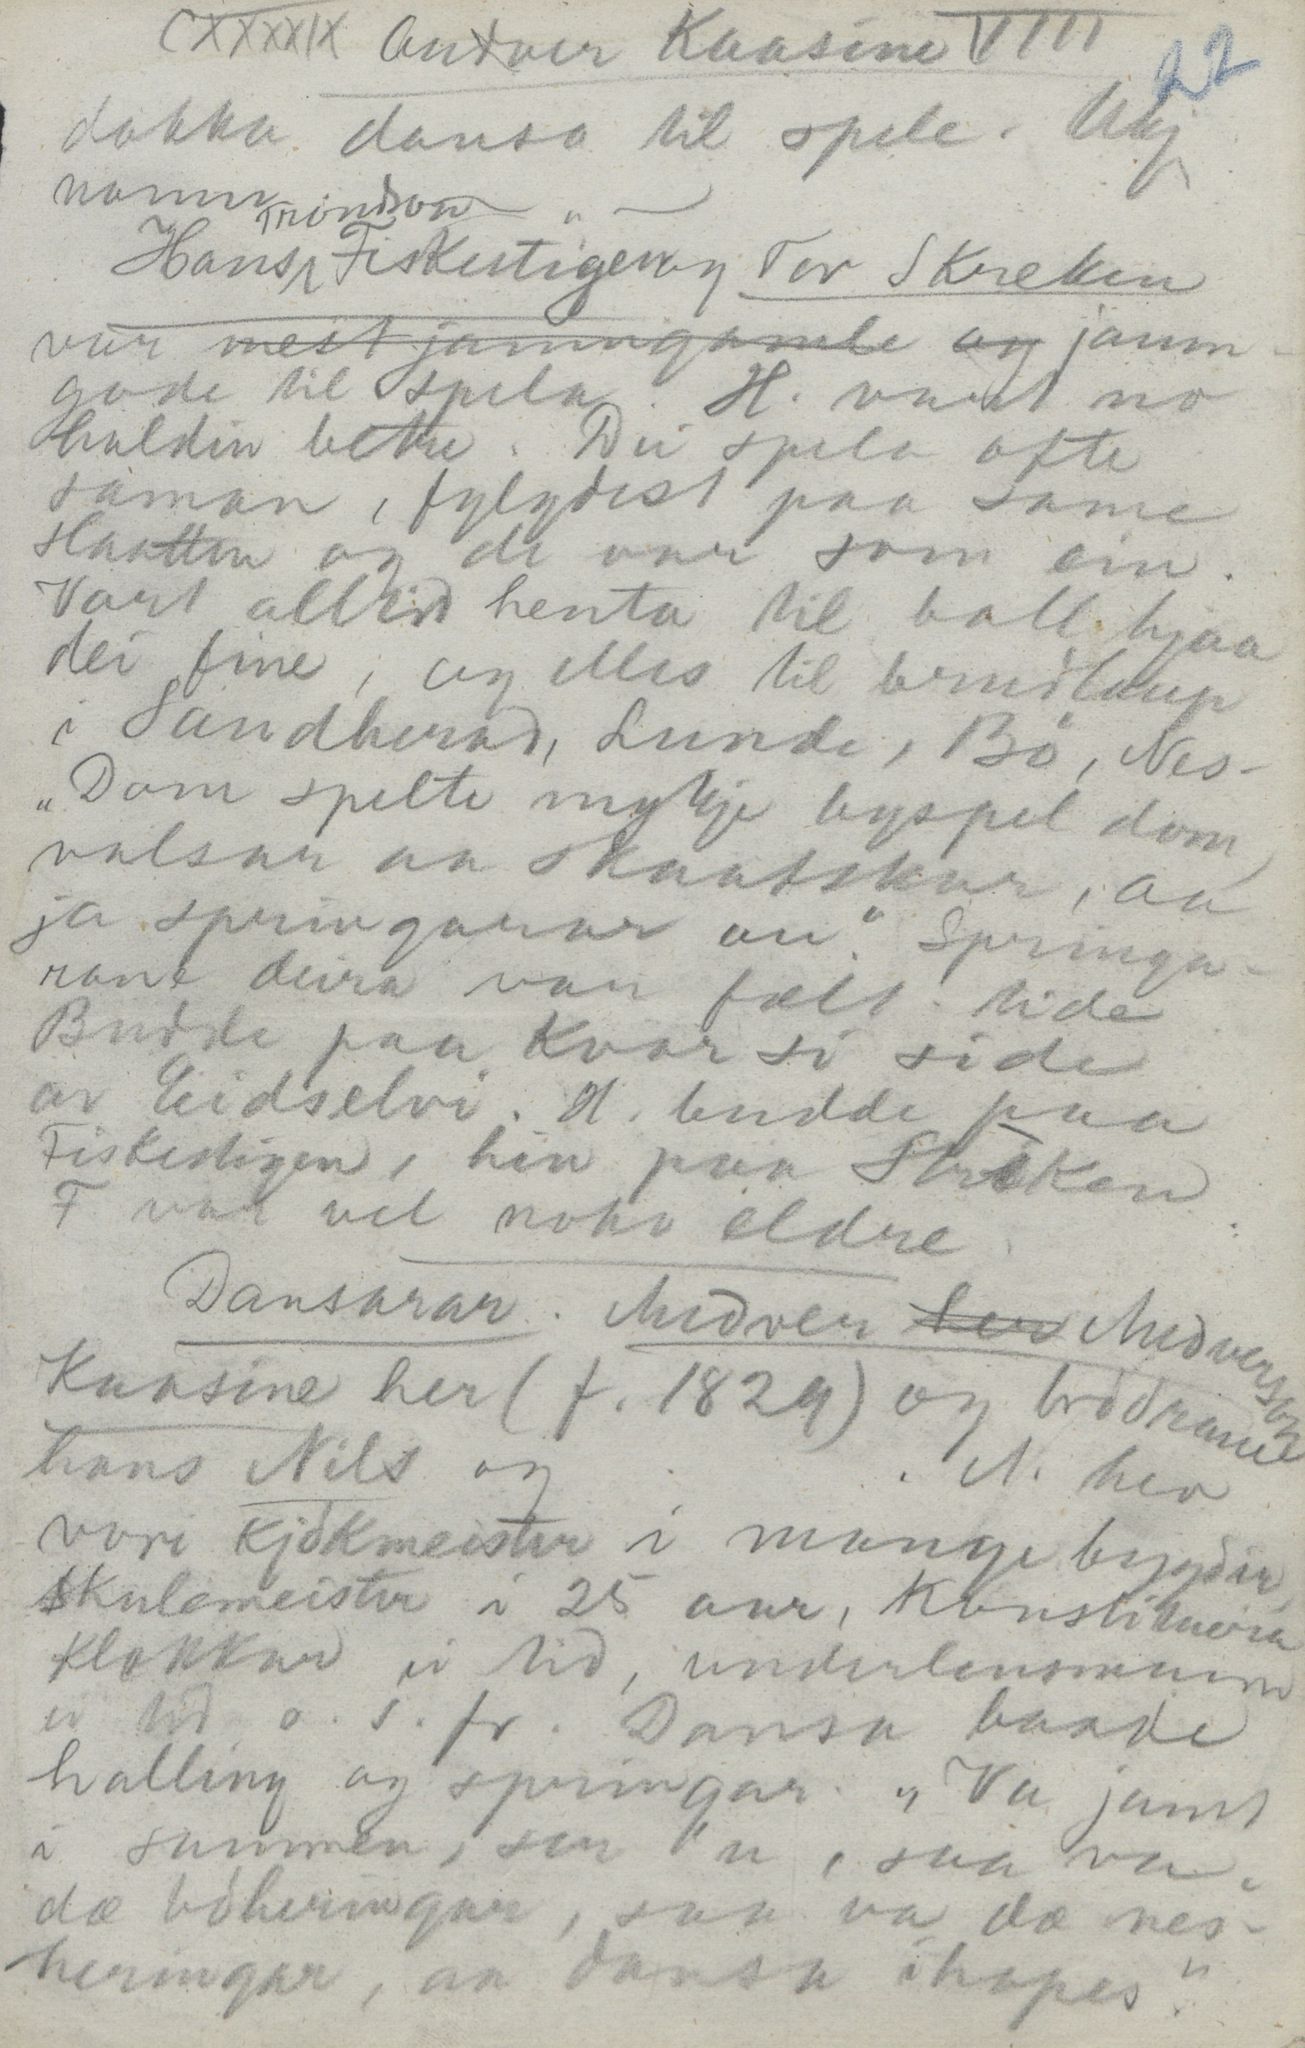 CXXXXIX Andver Kaasine VIII 22
dokka dansa til spele. Ukj
namn
Trondson
Hans Fiskestigen og Tor Skreken
var mest jamngamle og jamn-
gode til spela. H. vart no
haldin betre. Dei spela ofte
saman, fylgdest paa same
slaatten og de var som ein.
Vart alltid henta til ball hjaa
dei fine, og elles til brudlaup
i Sandherad, Lunde, Bö, Nes-
"Dom spelte mykje byspel dom,
valsar aa skaatskar, aa
ja springarar au". Springa-
rane deira var fælt tide
Budde paa kvar si side
av Eidselvi. H. budde paa
Fiskestigen, hin paa Skreken
F var vel noko eldre.
Dansarar. Medver her Medverson
Kaasine her (f. 1829) og brödrane
hans Nils og . M. hev
vori kjökmeister i mange bygdir,
skulemeister i 25 aar, konstituera
klokkar ei tid, underlensmann
ei tid o. s. fr. Dansa baade
halling og springar. "Va jamt
i sammen, ser 'u, saa va
dæ böheringar, saa va dæ nes-
heringar, aa dansa ihopes".